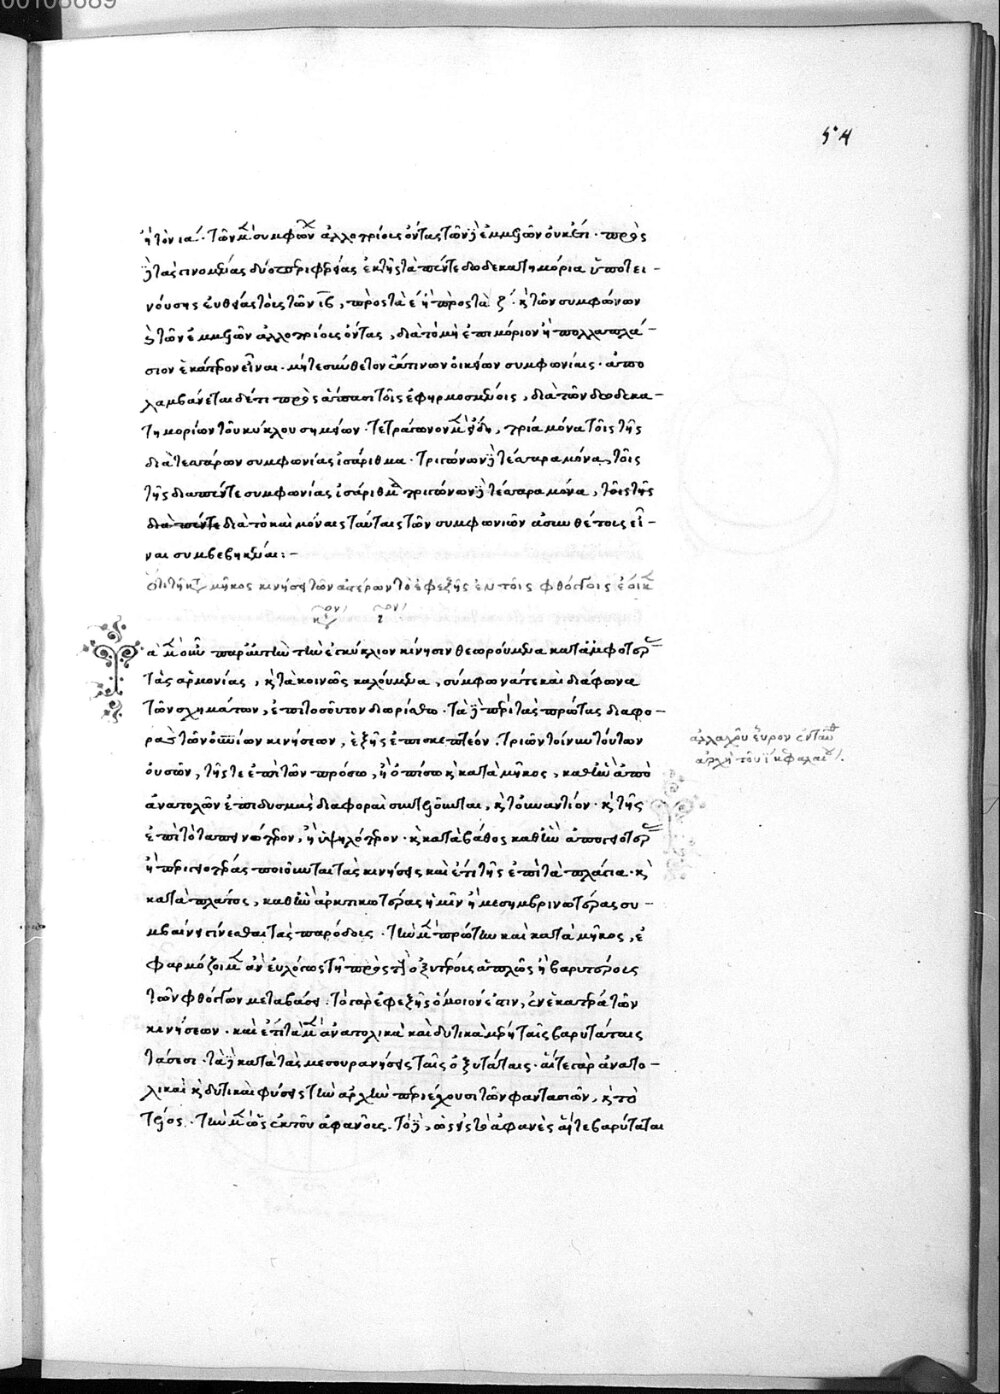 00108689
54
ἢ τὸν ια΄. τῶν μὲν συμφώνων ἀλλοτρίους ὄντας τῶν δὲ ἐμμελῶν οὐκέτι. πρὸς
δὲ τὰς γινομένας δύο περιφερείας ἐκ τῆς τὰ πέντε δωδεκατημόρια ὑποτει-
νούσης εὐθείας τοῖς τῶν ιβ, πρὸς τὰ ε ἢ πρὸς τὰ ζ΄. καὶ τῶν συμφώνων
καὶ τῶν ἐμμελῶν ἀλλοτρίοις ὄντας, διὰ τὸ μὴ ἐπιμόριον ἢ πολλαπλά-
σιον ἑκάτερον εἶναι. μήτε σύνθετον ἔκ τινων οἰκείων συμφωνίαις. ἀπο
λαμβάνεται δέ τι πρὸς ἅπασι τοῖς ἐφηρμοσμένοις, διὰ τῶν δώδεκα-
τημορίων τοῦ κύκλου σημείων. τετράγωνον μὲν εἴδη, τρία μόνα τοῖς τῆς
διὰ τεσσάρων συμφωνίας ἰσάριθμα. τριγώνων δὲ τέσσαρα μόνα, τοῖς
τῆς διὰ πέντε συμφωνίας ἰσάριθμα τριγώνων δὲ τέσσαρα μόνα, τοῖς τῆς
διὰ πέντε διὰ τὸ καὶ μόναις ταύταις τῶν συμφωνιῶν ἀσυνθέτοις εἶ-
ναι συμβεβηκέναι:-
Ὅτι τῇ κατὰ μῆκος κινήσει τῶν ἀστέρων τὸ ἐφεξῆς ἐν τοῖς φθόγγοις ἔοικεν
κεφ. ον ι ον
Τὰ μὲν οὖν παρ' αὐτὴν τὴν ἐγκύκλιον κίνησιν θεωρούμενα κατ' ἀμφοτέρας
τὰς ἁρμονίας, καὶ τὰ κοινῶς καλούμενα, σύμφωνά τε καὶ διάφωνα
τῶν σχημάτων, ἐπὶ τοσοῦτον διωρίσθω. τὰ δὲ περὶ τὰς πρώτας διαφο-
ρὰς τῶν οὐρανίων κινήσεων, ἑξῆς ἐπισκεπτέον. τριῶν τοίνυν τούτων
οὐσῶν, τῆς τε ἐπὶ τῶν πρόσω, ἢ ὀπίσω καὶ κατὰ μῆκος, καθ' ἣν ἀπὸ
ἀνατολῶν ἐπὶ δυσμὰς διαφοραὶ συντελοῦνται, καὶ τὸ ἐναντίον. καὶ τῆς
ἐπὶ τὸ ταπεινότερον, ἢ ὑψηλότερον. καὶ κατὰ βάθος καθ' ἣν ἀπογειοτέρας
ἢ περιγειοτέρας ποιοῦνται τὰς κινήσεις καὶ ἔτι τῆς ἐπὶ τὰ πλάγια. καὶ
κατὰ πλάτος, καθ' ἣν ἀρκτικωτέρας ἡμῖν ἢ μεσημβρινωτέρας συ-
μβαίνει γίνεσθαι τὰς παρόδους. τὴν μὲν πρώτην καὶ κατὰ μῆκος, ἐ
φαρμόζοιμεν ἂν εὐλόγως τῇ πρὸς τὸ ὀξυτέροις ἁπλῶς ἢ βαρυτέροις
τῶν φθόγγων μεταβάσει. τὸ γὰρ ἐφεξῆς ὅμοιόν ἐστιν, ἐν ἑκατέρᾳ τῶν
κινήσεων. καὶ ἔτι τὰ μὲν ἀνατολικὰ καὶ δυτικὰ μέρη ταῖς βαρυτάταις
τάσεσι. τὰ δὲ κατὰ τὰς μεσουρανήσεις ταῖς ὀξυτάταις. αἵ τε γὰρ ἀνατο-
λικαὶ καὶ δυτικαὶ φύσεις τὴν ἀρχὴν περιέχουσι τῶν φαντασιῶν, καὶ τὸ
τέλος. τὴν μὲν ὡς ἐκ τοῦ ἀφανοῦς. τὸ δὲ, ὡς εἰς τὸ ἀφανὲς αἵ τε βαρύταται
ἀλλαχοῦ εὗρον ἐνταῦθα
ἀρχὴ τοῦ ι κεφαλαίου.